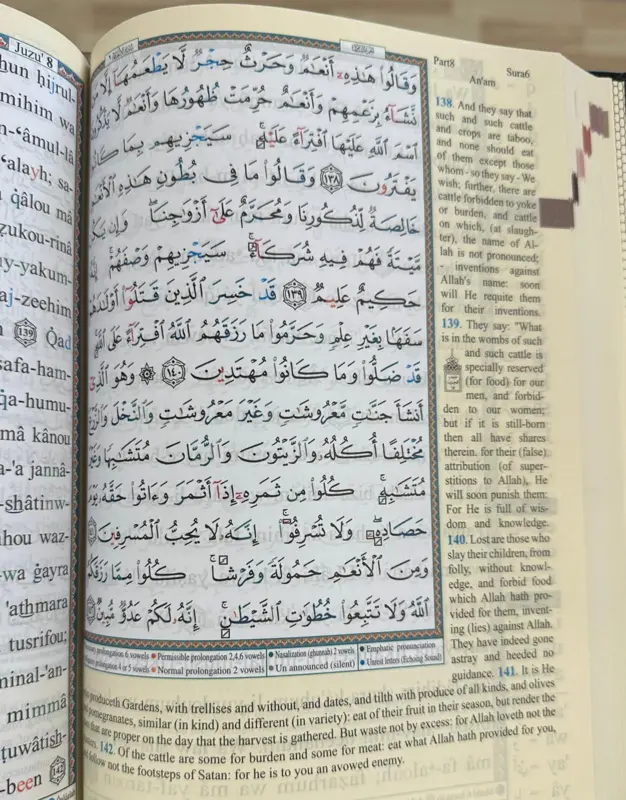 Juzu' 8
hun hijrul-
mihim wa
n-'âmul-lâ
'alayh; sa-
qâlou mâ
zukou-rinâ
y-yakum-
aj-zeehim
139 Qad
safa-ham-
qa-humu-
mâ kânou
a-'a jannâ-
-shâtinw-
ihou waz-
-wa gayra
'athmara
tusrifou;
minal-'an-
mimmâ
tuwâtish-
-been 142
وَقَالُوا۟ هَٰذِهِۦٓ أَنْعَٰمٌ وَحَرْثٌ حِجْرٌ لَّا يَطْعَمُهَآ إِلَّا مَن
نَّشَآءُ بِزَعْمِهِمْ وَأَنْعَٰمٌ حُرِّمَتْ ظُهُورُهَا وَأَنْعَٰمٌ لَّا يَذْكُرُونَ
ٱسْمَ ٱللَّهِ عَلَيْهَا ٱفْتِرَآءً عَلَيْهِ ۚ سَيَجْزِيهِم بِمَا كَانُوا۟
يَفْتَرُونَ ١٣٨ وَقَالُوا۟ مَا فِى بُطُونِ هَٰذِهِ ٱلْأَنْعَٰمِ
خَالِصَةٌ لِّذُكُورِنَا وَمُحَرَّمٌ عَلَىٰٓ أَزْوَٰجِنَا ۖ وَإِن يَكُن
مَّيْتَةً فَهُمْ فِيهِ شُرَكَآءُ ۚ سَيَجْزِيهِمْ وَصْفَهُمْ ۚ إِنَّهُۥ
حَكِيمٌ عَلِيمٌ ١٣٩ قَدْ خَسِرَ ٱلَّذِينَ قَتَلُوٓا۟ أَوْلَٰدَهُمْ
سَفَهًۢا بِغَيْرِ عِلْمٍ وَحَرَّمُوا۟ مَا رَزَقَهُمُ ٱللَّهُ ٱفْتِرَآءً عَلَى ٱللَّهِ ۚ
قَدْ ضَلُّوا۟ وَمَا كَانُوا۟ مُهْتَدِينَ ١٤٠ ۞ وَهُوَ ٱلَّذِىٓ
أَنشَأَ جَنَّٰتٍ مَّعْرُوشَٰتٍ وَغَيْرَ مَعْرُوشَٰتٍ وَٱلنَّخْلَ وَٱلزَّرْعَ
مُخْتَلِفًا أُكُلُهُۥ وَٱلزَّيْتُونَ وَٱلرُّمَّانَ مُتَشَٰبِهًا وَغَيْرَ
مُتَشَٰبِهٍ ۚ كُلُوا۟ مِن ثَمَرِهِۦٓ إِذَآ أَثْمَرَ وَءَاتُوا۟ حَقَّهُۥ يَوْمَ
حَصَادِهِۦ ۖ وَلَا تُسْرِفُوٓا۟ ۚ إِنَّهُۥ لَا يُحِبُّ ٱلْمُسْرِفِينَ
وَمِنَ ٱلْأَنْعَٰمِ حَمُولَةً وَفَرْشًا ۚ كُلُوا۟ مِمَّا رَزَقَكُمُ
ٱللَّهُ وَلَا تَتَّبِعُوا۟ خُطُوَٰتِ ٱلشَّيْطَٰنِ ۚ إِنَّهُۥ لَكُمْ عَدُوٌّ مُّبِينٌ
prolongation 6 vowels ● Permissible prolongation 2,4,6 vowels ● Nasalization (ghunnah) 2 vowels ● Emphatic pronunciation
prolongation 4 or 5 vowels ● Normal prolongation 2 vowels ● Un announced (silent) ● Unrest letters (Echoing Sound)
Part8 Sura6
An'am
138. And they say that
such and such cattle
and crops are taboo,
and none should eat
of them except those
whom - so they say - We
wish; further, there are
cattle forbidden to yoke
or burden, and cattle
on which, (at slaugh-
ter), the name of Al-
lah is not pronounced;
- inventions against
Allah's name: soon
will He requite them
for their inventions.
139. They say: "What
is in the wombs of such
and such cattle is
specially reserved
(for food) for our
men, and forbid-
den to our women;
but if it is still-born
then all have shares
therein. for their (false)
attribution (of super-
stitions to Allah), He
will soon punish them:
For He is full of wis-
dom and knowledge.
140. Lost are those who
slay their children, from
folly, without knowl-
edge, and forbid food
which Allah hath pro-
vided for them, invent-
ing (lies) against Allah.
They have indeed gone
astray and heeded no
guidance. 141. It is He
produceth Gardens, with trellises and without, and dates, and tilth with produce of all kinds, and olives
pomegranates, similar (in kind) and different (in variety): eat of their fruit in their season, but render the
that are proper on the day that the harvest is gathered. But waste not by excess: for Allah loveth not the
142. Of the cattle are some for burden and some for meat: eat what Allah hath provided for you,
follow not the footsteps of Satan: for he is to you an avowed enemy.